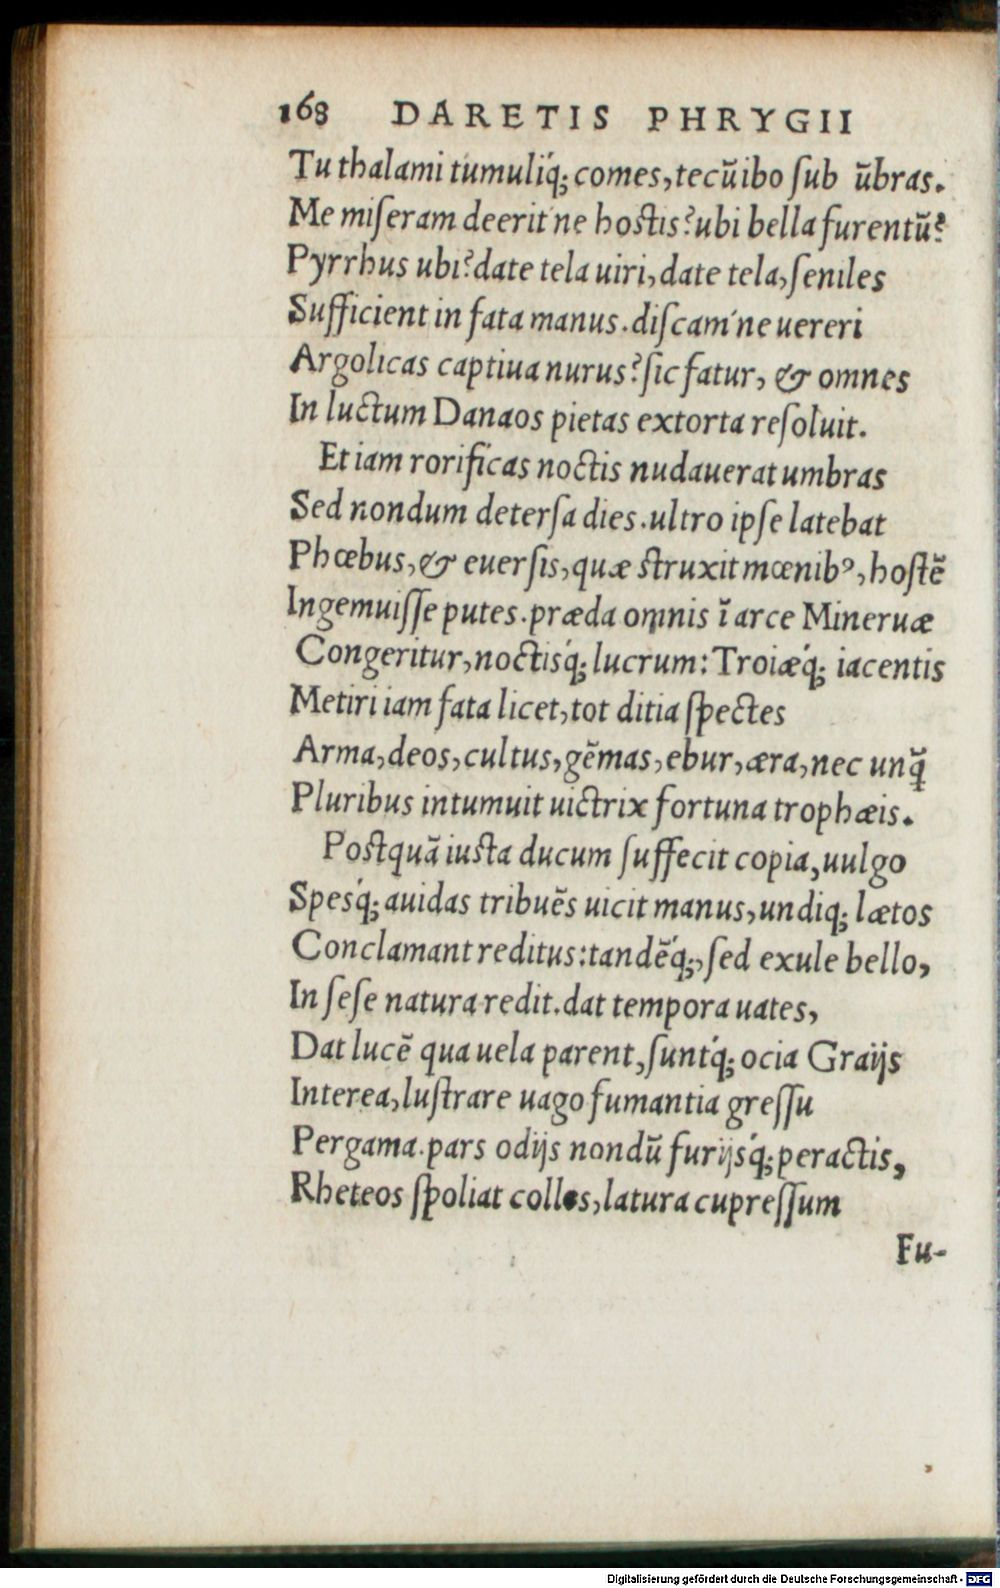 168 DARETIS PHRYGII
Tu thalami tumuliq́; comes, tecũ ibo ſub ũbras.
Me miſeram deerit'ne hostis? ubi bella furentũ?
Pyrrhus ubi? date tela uiri, date tela, ſeniles
Sufficient in fata manus. diſcam'ne uereri
Argolicas captiua nurus? ſic fatur, & omnes
In luctum Danaos pietas extorta reſoluit.
Et iam rorificas noctis nudauerat umbras
Sed nondum deterſa dies. ultro ipſe latebat
Phœbus, & euerſis, quæ struxit mœnibꝰ, hoſtẽ
Ingemuiſſe putes. præda omnis ĩ arce Mineruæ
Congeritur, noctisq́; lucrum: Troiæq́; iacentis
Metiri iam fata licet, tot ditia ſpectes
Arma, deos, cultus, gẽmas, ebur, æra, nec unq̃
Pluribus intumuit uictrix fortuna trophæis.
Postquã iusta ducum ſuffecit copia, uulgo
Spesq́; auidas tribuẽs uicit manus, undiq; lætos
Conclamant reditus: tandẽq́;, ſed exule bello,
In ſeſe natura redit. dat tempora uates,
Dat lucẽ qua uela parent, ſuntq́; ocia Graijs
Interea, luſtrare uago fumantia greſſu
Pergama. pars odijs nondũ furijsq́; peractis,
Rheteos ſpoliat colles, latura cupreſſum
Fu-
Digitalisierung gefördert durch die Deutsche Forschungsgemeinschaft - DFG